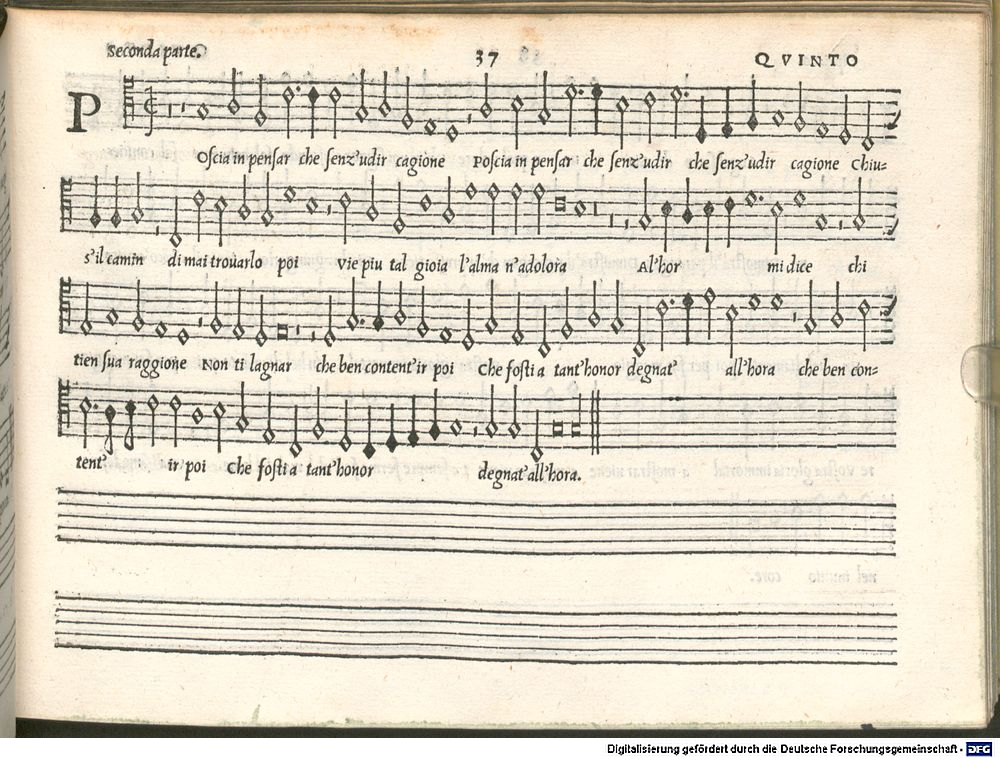 Seconda parte. 37 QVINTO
P
Oscia in pensar che senz'udir cagione Poscia in pensar che senz'udir che senz'udir cagione Chiu=
s'il camin di mai trouarlo poi vie piu tal gioia l'alma n'adolora Al'hor mi dice chi
tien sua raggione Non ti lagnar che ben content'ir poi Che fosti a tant'honor degnat' all'hora che ben con=
tent' ir poi Che fosti a tant'honor degnat'all'hora.
Digitalisierung gefördert durch die Deutsche Forschungsgemeinschaft - DFG